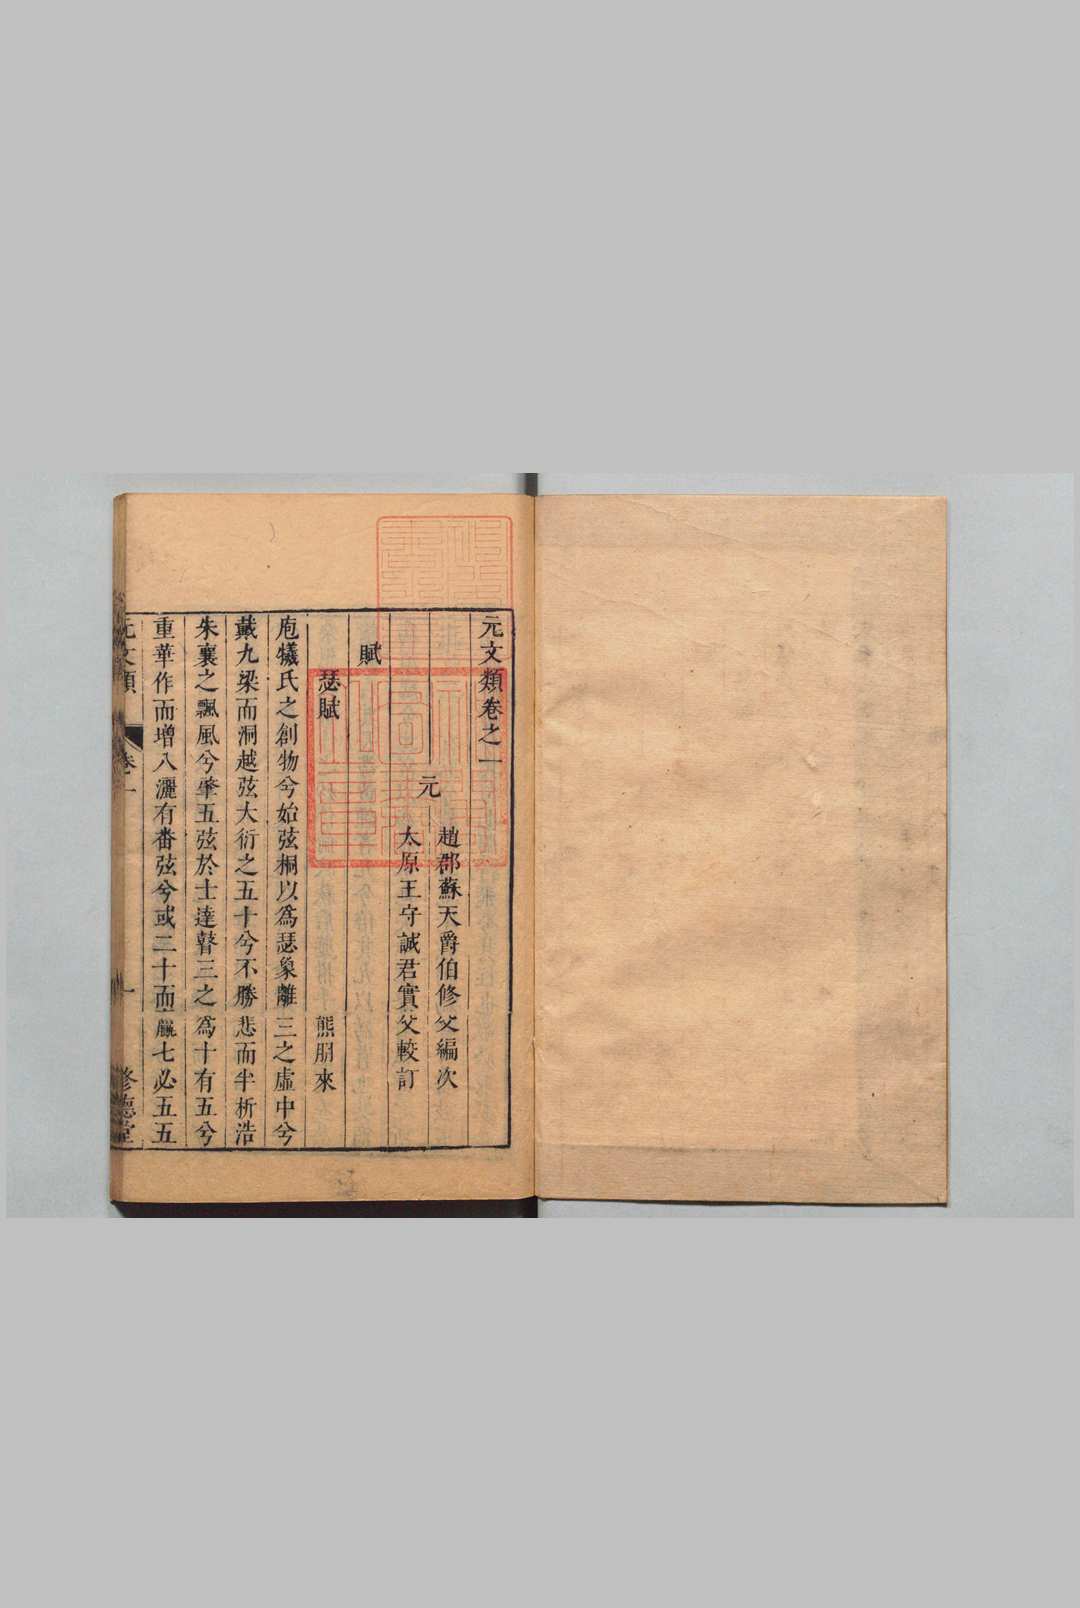 元文類卷之一
元
趙郡蘇天爵伯修父編次
太原王守誠君實父較訂
賦
瑟賦 熊朋來
庖犧氏之創物兮始弦桐以為瑟象離三之虛中兮
戴九梁而洞越弦大衍之五十兮不勝悲而半析浩
朱襄之飄風兮肇五弦於士達瞽三之為十有五兮
重華作而增八灑有番弦兮或二十而羸七必五五
元文類 卷一 一 修德堂